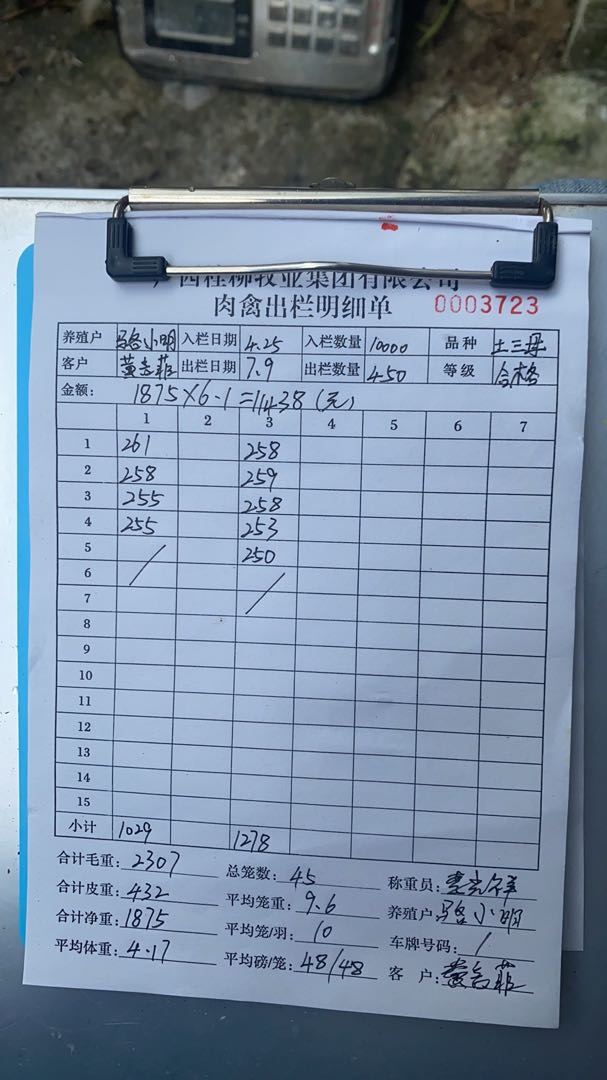 广西桂柳牧业集团有限公司
肉禽出栏明细单 0003723
养殖户 骆小明 入栏日期 4.25 入栏数量 10000 品种 土三母
客户 黄志菲 出栏日期 7.9 出栏数量 450 等级 合格
金额: 1875×6.1=11438(元)
1 2 3 4 5 6 7
1 261 258
2 258 259
3 255 258
4 255 253
5 250
6
7
8
9
10
11
12
13
14
15
小计 1029 1278
合计毛重: 2307 总笼数: 45 称重员:
合计皮重: 432 平均笼重: 9.6 养殖户: 骆小明
合计净重: 1875 平均笼/羽: 10 车牌号码: /
平均体重: 4.17 平均磅/笼: 48/48 客 户: 黄志菲